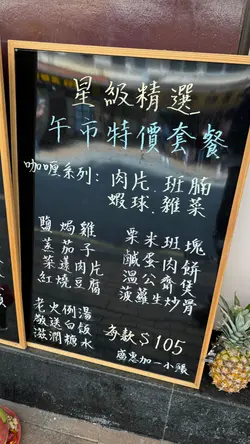 星級精選
午市特價套餐
咖喱系列：肉片．班腩
蝦球．雜菜
鹽焗雞
蒸茄子
菜薳肉片
紅燒豆腐
粟米班塊
鹹蛋肉餅
溫公齋煲
菠蘿生炒骨
老火例湯
敬送白飯
滋潤糖水
每款$105
惠加一小賬